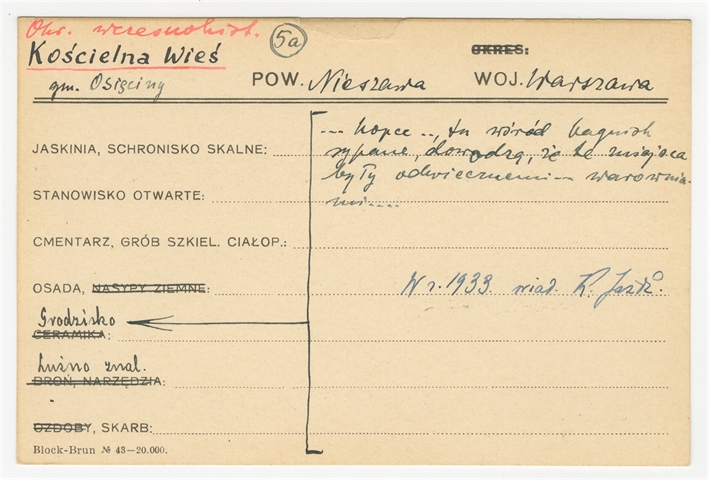 Okr. wczesnohist.
5a
Kościelna Wieś
OKRES:
gm. Osięciny POW. Nieszawa WOJ. Warszawa
--- kopce .., tu wśród bagnisk
JASKINIA, SCHRONISKO SKALNE:
sypane, dowodzą, że te miejsca
były odwiecznemi -- warownia-
STANOWISKO OTWARTE:
mi....
CMENTARZ, GRÓB SZKIEL. CIAŁOP.:
OSADA, NASYPY ZIEMNE:
W r. 1933 wiad. K. Jażdż.
Grodzisko
CERAMIKA:
Luźno znal.
BROŃ, NARZĘDZIA:
OZDOBY, SKARB:
Block-Brun № 43—20.000.